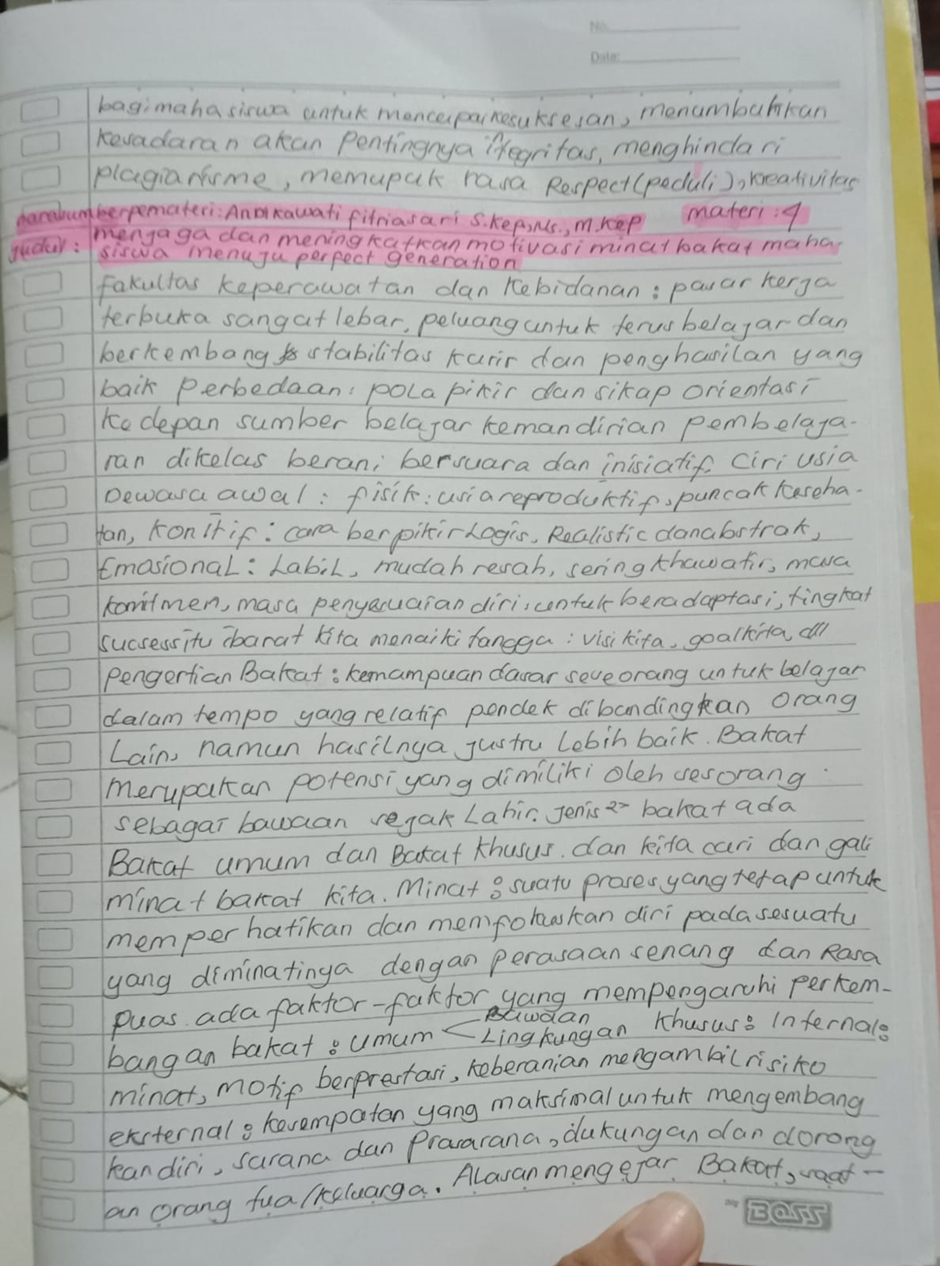 No.
Date:
bagi mahasiswa untuk mencapai kesuksesan, menumbuhkan
kesadaran akan Pentingnya itegritas, menghindari
plagiarisme, memupuk rasa Respect (peduli), kreativitas
berpemateri: Andikawati fitriasari S.kep,Ns., M.kep materi : 4
judul : menjaga dan meningkatkan motivasi minat bakat maha
siswa menuju perfect generation
fakultas keperawatan dan Kebidanan : pasar kerja
terbuka sangat lebar, peluang untuk terus belajar dan
berkembang stabilitas karir dan penghasilan yang
baik Perbedaan : pola pikir dan sikap orientasi
Kedepan sumber belajar kemandirian pembelaja-
ran dikelas berani bersuara dan inisiatif ciri usia
Dewasa awal : fisik : usia reproduktif, puncak keseha-
tan, Konitif : cara berpikir Logis, Realistic dan abstrak,
Emasional : Labil, mudah resah, sering khawatir, masa
komitmen, masa penyesuaian diri, untuk beradaptasi, tingkat
success itu ibarat kita menaiki tangga : visi kita, goal kita, dll
Pengertian Bakat : kemampuan dasar seseorang untuk belajar
dalam tempo yang relatif pendek dibandingkan Orang
Lain, namun hasilnya justru lebih baik. Bakat
merupakan potensi yang dimiliki oleh sesorang
sebagai bawaan sejak Lahir. Jenis2- bakat ada
Bakat umum dan Bakat khusus. dan kita cari dan gali
minat bakat kita. Minat : suatu proses yang tetap untuk
memperhatikan dan memfokuskan diri pada sesuatu
yang diminatinya dengan perasaan senang dan Rasa
puas. ada faktor-faktor yang mempengaruhi Perkem-
bangan bakat : umum < Bawaan Lingkungan Khusus : Internal :
minat, motif berprestasi, keberanian mengambil risiko
eksternal : kesempatan yang maksimal untuk mengembang
kan diri, sarana dan Prasarana, dukungan dan dorong
an orang tua/keluarga. Alasan mengejar Bakat, saat-
BOSS